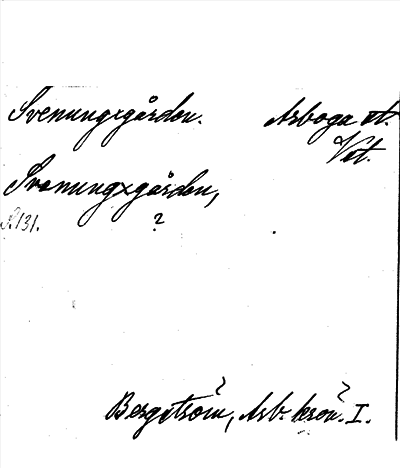 Svenungsgården. Arboga st.
Vst.
Svanungsgården,
S. 131. ?
Bergström, Arb. krön. I.